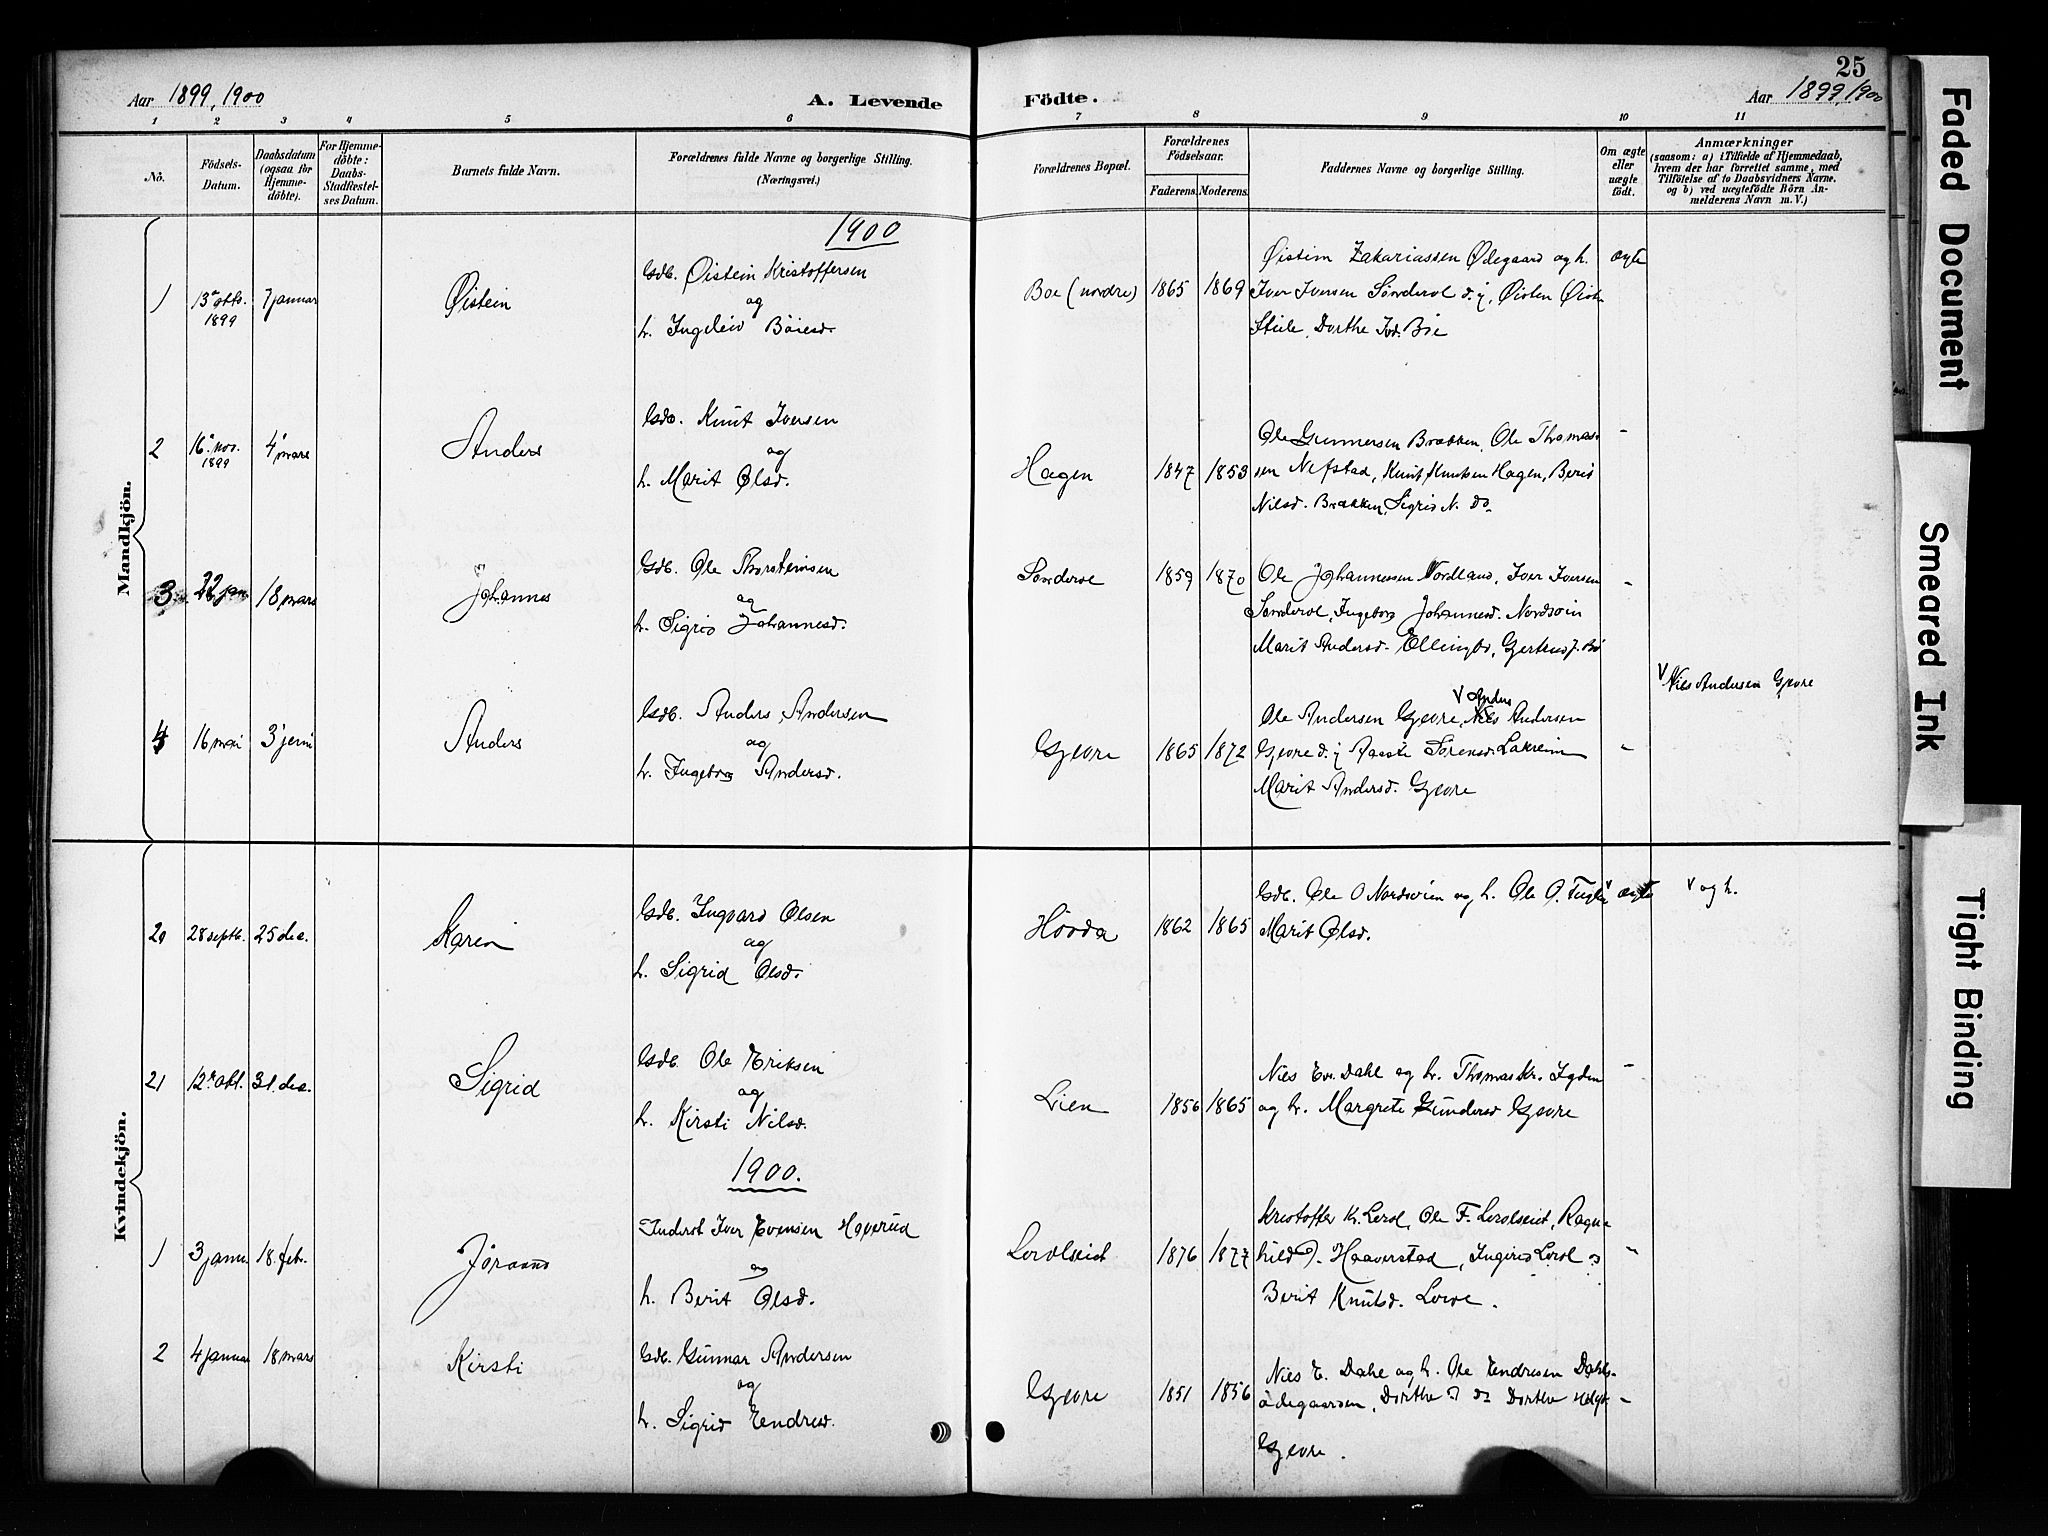 25
Aar 1899, 1900
A. Levende
Födte.
Aar 1899, 1900
1 2 3 4 5 6 7 8 9 10 11
No.
Födsels-
Datum.
Daabsdatum
(ogsaa for
Hjemme-
döbte).
For Hjemme-
döbte:
Daabs-
Stadfæstel-
ses Datum.
Barnets fulde Navn.
Forældrenes fulde Navne og borgerlige Stilling.
(Næringsvei.)
Forældrenes Bopæl.
Forældrenes
Födselsaar.
Faderens. Moderens.
Faddernes Navne og borgerlige Stilling.
Om ægte
eller
uægte
födt.
Anmærkninger
(saasom: a) i Tilfælde af Hjemmedaab,
hvem der har forrettet samme, med
Tilföielse af to Daabsvidners Navne,
og b) ved uægtefödte Börn An-
melderens Navn m. V.)
Mandkjön.
1900
1 13' oktb. 1899 7 januar Øistein
Gdb. Øistein Kristoffersen
og
h. Ingeleiv Böiesd.
Boe (nordre) 1865 1869
Øistein Zakariassen Ødegaard og h.
Iver Iversen Sönderol d.y, Øisten Øist.
Steile, Dorthe Ivd. Böe
ægte
2 16' nov. 1899 4' mars Anders
Gdb. Knut Iversen
og
h. Marit Olsd.
Hagen 1847 1853
Ole Gunnersen Brækken, Ole Thomas-
sen Nefstad, Knut Knutsen Hagen, Berit
Nilsd. Brækken, Sigrid N. do
-
3 22 jan 18 mars Johannes
Gdb. Ole Thorsteinsen
og
h. Sigrid Johannesd.
Sönderol 1859 1870
Ole Johannessen Nordland, Iver Iversen
Sönderol, Ingeborg Johannesd. Nordsvin
Marit Andersd. Ellingbö, Gertrud J. Bö
-
4 16 mai 3' juni Anders
Gdb. Anders Andersen
og
h. Ingeborg Andersd.
Gjevre 1865 1872
V Anders
Ole Andersen Gjevre, Nils Andersen
Gjevre d.y Aaste Sörensd. Lakreim
Marit Andersd. Gjevre
-
V Nils Andersen Gjevre
Kvindekjön.
20 28 septb. 25 dec. Karen
Gdb. Ingvard Olsen
og
h. Sigrid Olsd.
Hövda 1862 1865
Gdb. Ole O Nordsvien og h. Ole O. Fuglei V
Marit Olsd.
ægte
V og h.
21 12' okt. 31. dec. Sigrid
Gdb. Ole Eriksen
og
h. Kirsti Nilsd.
Lien 1856 1865
Nils Ev. Dahl og h. Thomas Kr. Igden
og h. Margrete Gundersd Gjevre
-
1900.
1 3 janu. 18. febr. Jörand
Inderst Iver Evensen Haverud
og
h. Berit Olsd.
Lerolseid 1876 1877
Kristoffer K. Lerol, Ole F. Lerolseid, Ragn-
hild J. Haaverstad, Ingrid Lerol og
Berit Knutsd. Lerol.
-
2 4 januar 18 mars Kirsti
Gdb. Gunnar Andersen
og
h. Sigrid Endresd.
Gjevre 1851 1856
Nils E. Dahl og h. Ole Endresen Dahls-
ødegaarden, Dorthe do Dorthe Helge
Gjevre.
-
Faded Document
Smeared Ink
Tight Binding